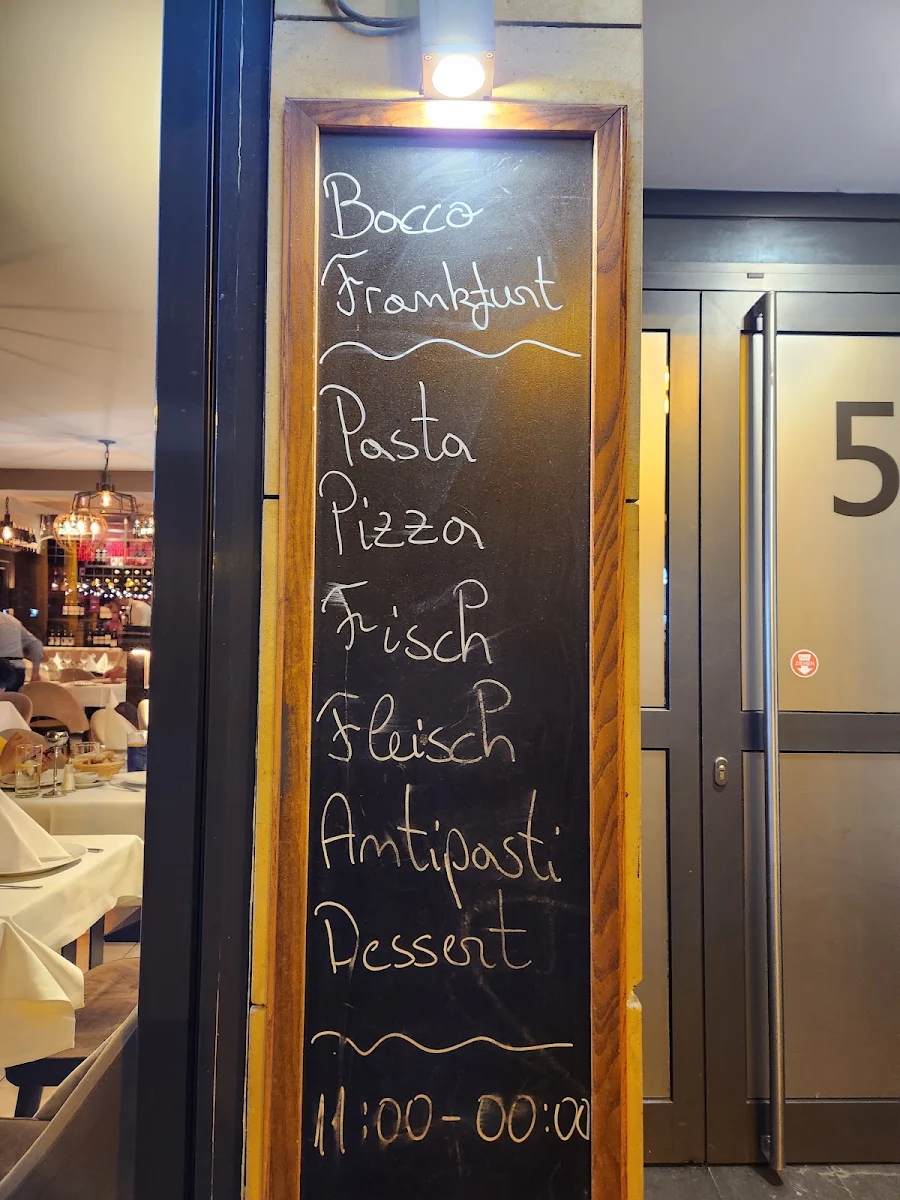 Bocco
Frankfurt
Pasta
Pizza
Fisch
Fleisch
Antipasti
Dessert
11:00-00:00
5
ZIEHEN